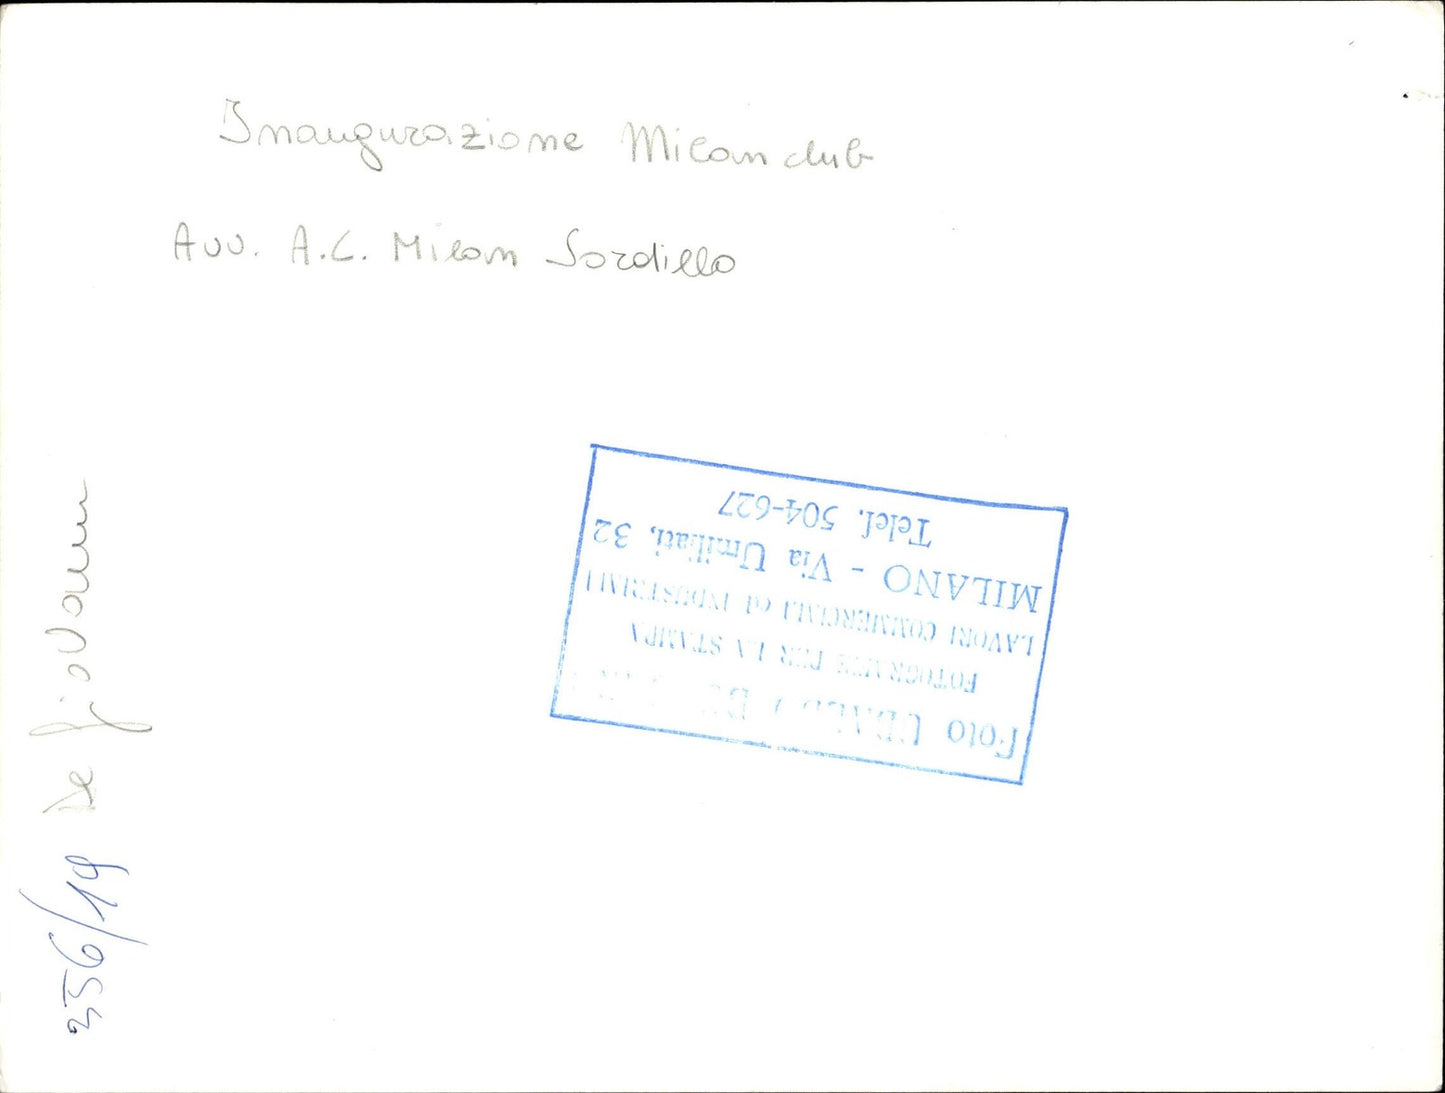 Inaugurazione Milan club
Avv. A.C. Milan Sordillo
De Giovanni
356/19
Foto UBALDO
FOTOGRAFIE PER LA STAMPA
LAVORI COMMERCIALI ed INDUSTRIALI
MILANO - Via Umiliati, 32
Telef. 504-627